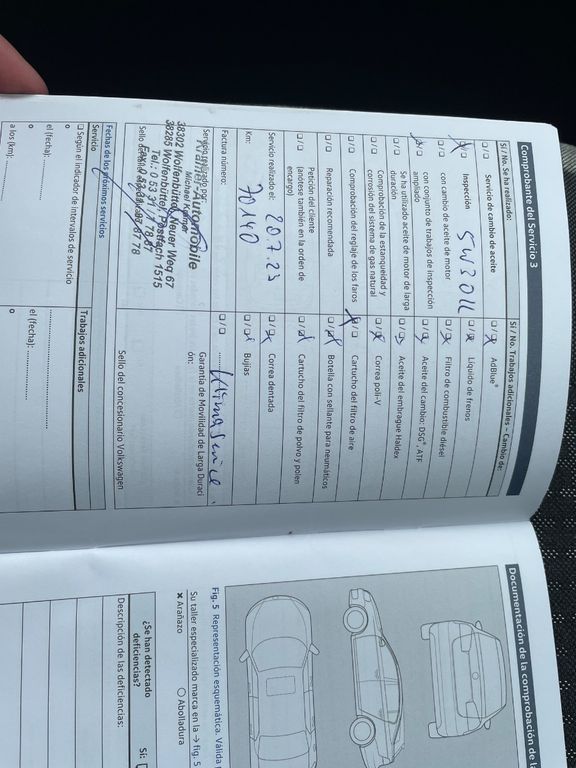 Comprobante del Servicio 3
SÍ / No. Se ha realizado:
SÍ / No. Trabajos adicionales – Cambio de:
Servicio de cambio de aceite
Inspección
con cambio de aceite de motor
con conjunto de trabajos de inspección
ampliado
Se ha utilizado aceite de motor de larga
duración
Comprobación de la estanqueidad y
corrosión del sistema de gas natural
Comprobación del reglaje de los faros
Reparación recomendada
Petición del cliente
(anótese también en la orden de
encargo)
Servicio realizado el:
Km: 70140
Factura número:
Servicio realizado por:
Automobile
Michael
38302 Wolfenbüttel, Neuer Weg 67
38285 Wolfenbüttel, Postfach 1515
AdBlue®
Líquido de frenos
Filtro de combustible diésel
Aceite del cambio: DSG®, ATF
Aceite del embrague Haldex
Correa poli-V
Cartucho del filtro de aire
Botella con sellante para neumáticos
Cartucho del filtro de polvo y polen
Correa dentada
Bujías
Klimaservice
Garantía de Movilidad de Larga Duraci
ón:
Sello del concesionario Volkswagen
Fechas de los próximos servicios
Servicio
Trabajos adicionales
Según el indicador de intervalos de servicio
o
el (fecha):
o
a los (km):
el (fecha):
o
Documentación de la comprobación de la
Fig. 5 Representación esquemática. Válida
Su taller especializado marca en la → fig. 5
Arañazo
Abolladura
¿Se han detectado
deficiencias?
Sí:
Descripción de las deficiencias: